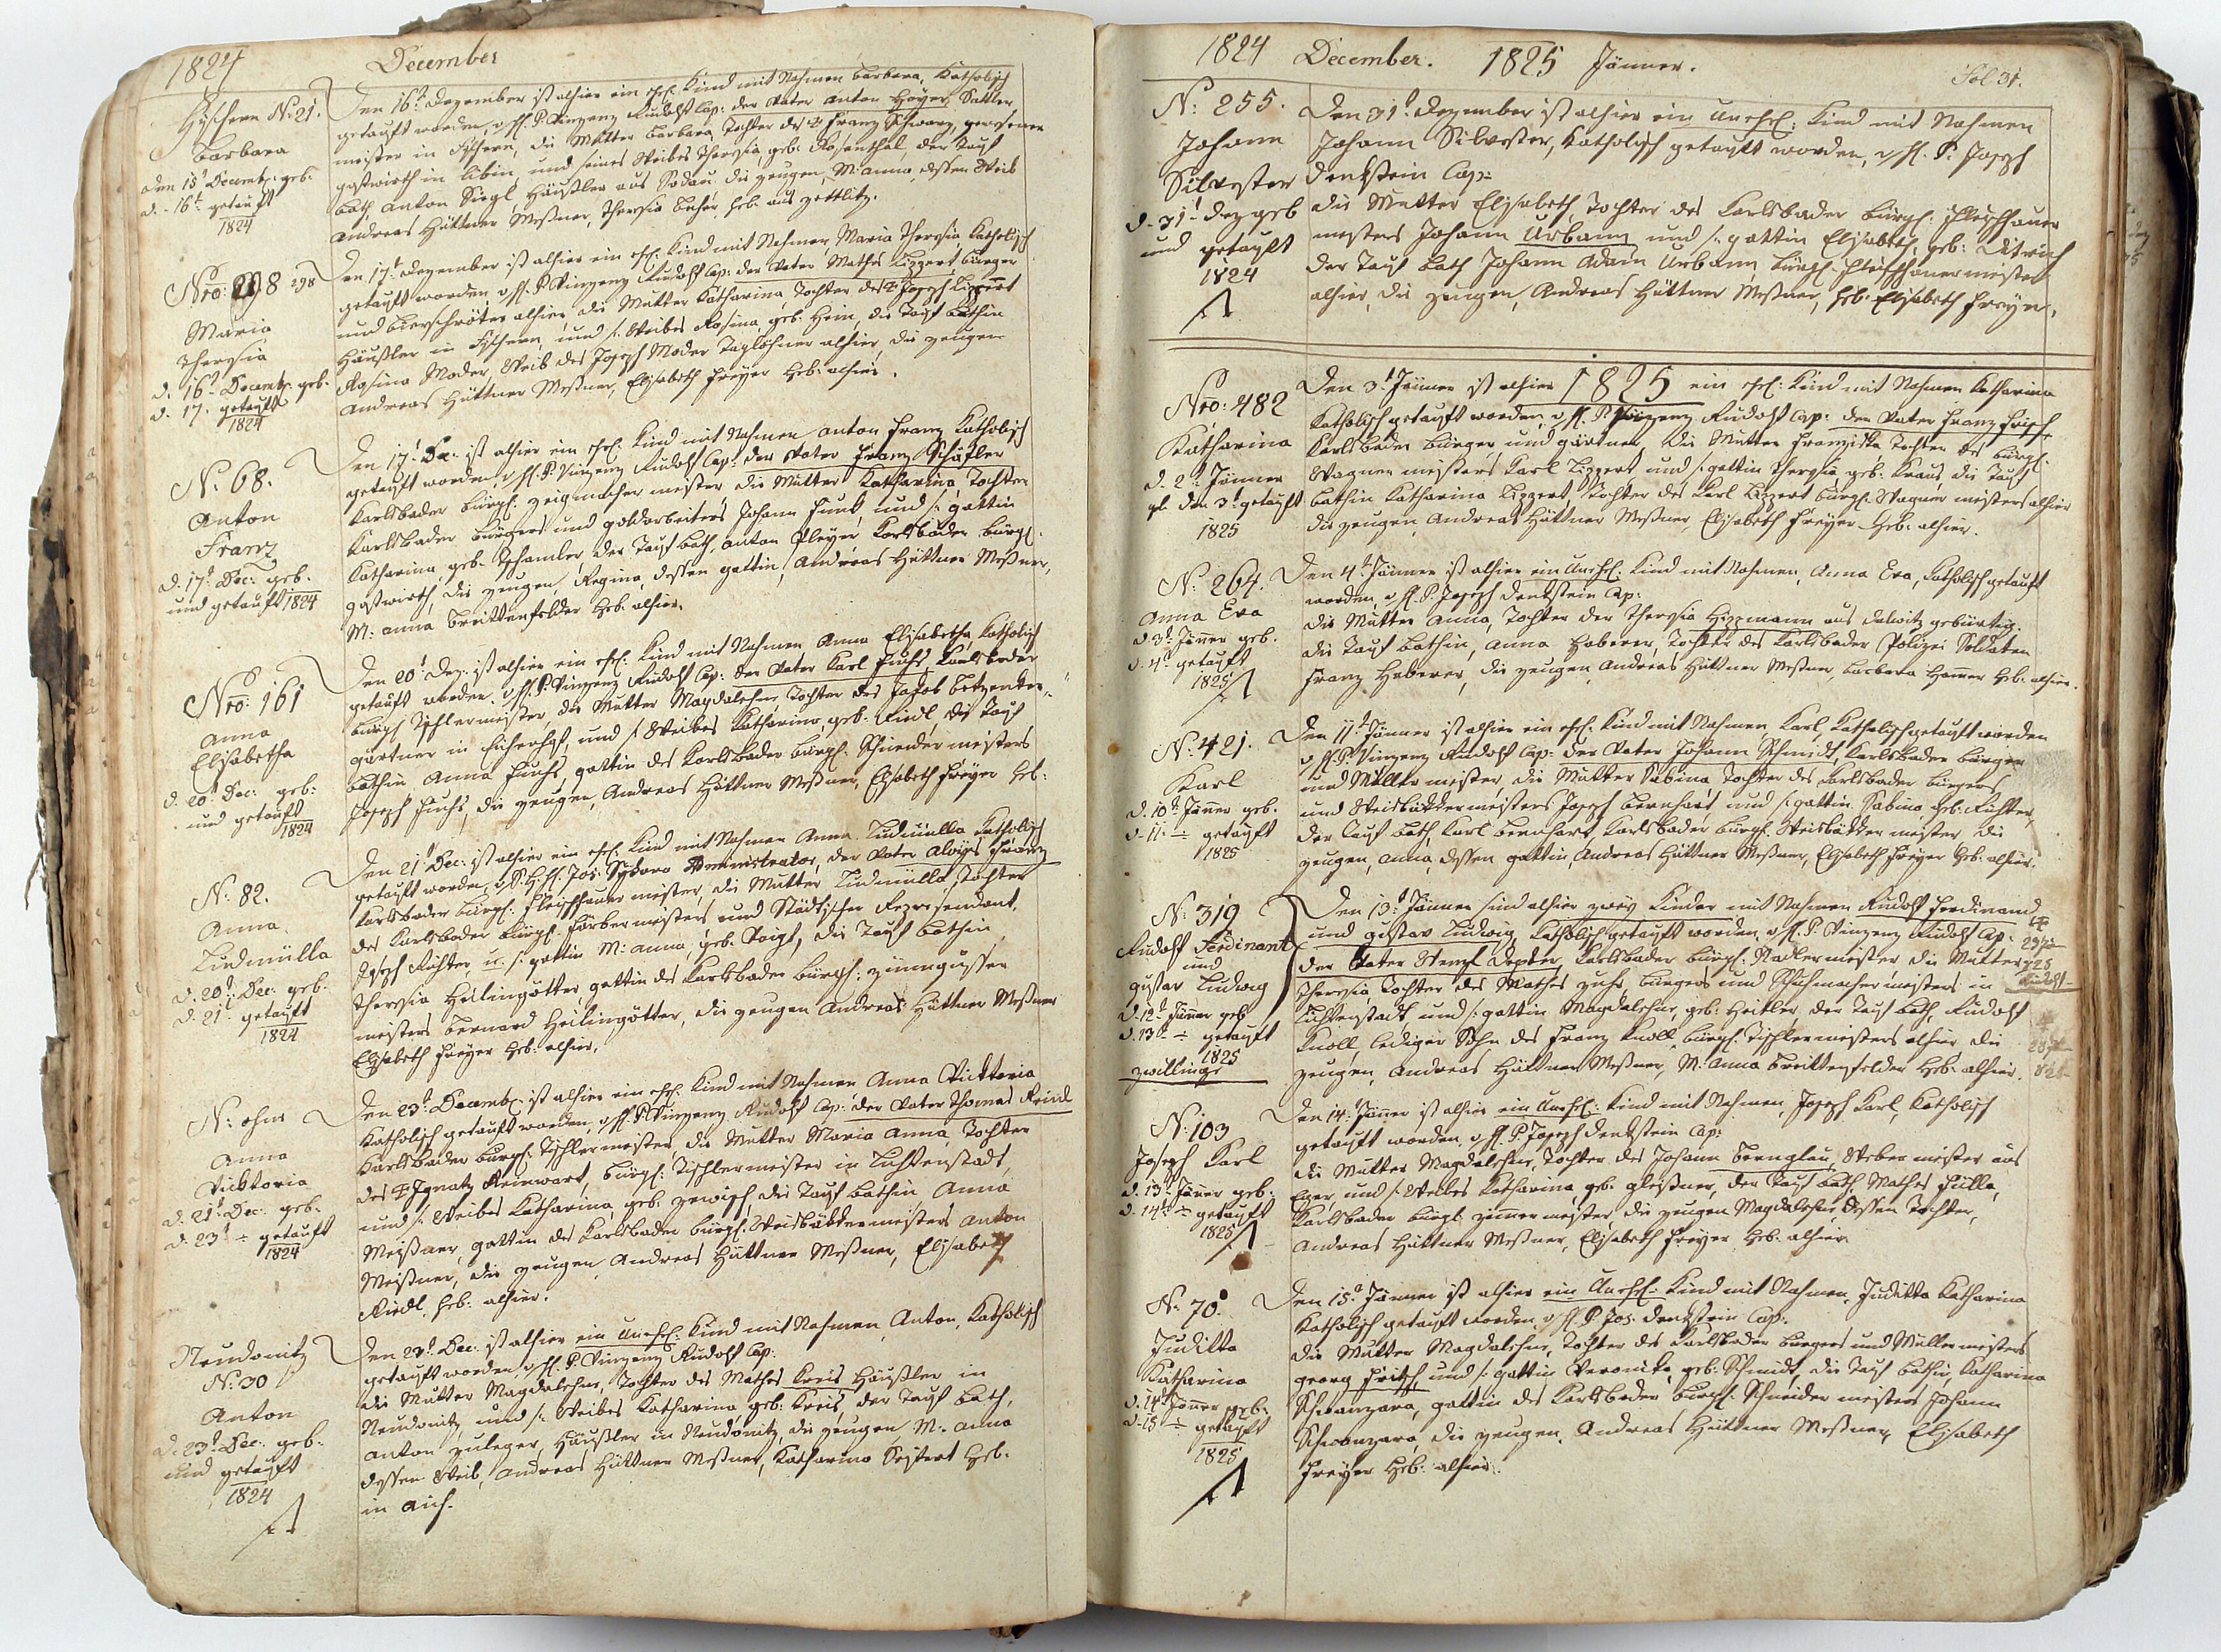 1824 December
Fischern N: 21.
Barbara
den 15t Decemb: geb.
d. 16t getauft
1824
Den 16t Dezember ist alhier ein ehel: Kind mit Nahmen Barbara, Katholisch
getauft worden, v. H. P. Vinzenz Rudolf Cap: der Vater Anton Hoyer, Sattler
meister in Fischern, die Mutter Barbara Tochter des Franz Schwarz gewesener
gastwirth in Libin, und seines Weibes Theresia geb: Rosenthal, der Tauf
bath Anton Siegl Häußler aus Sodau die zeugen, M: Anna, dessen Weib
Andreas Hüttner Meßner, Theresia heb: aus Zettlitz.
Nro: 298 298
Maria
Theresia
d. 16t Decemb: geb.
d. 17. getauft
1824
Den 17t Dezember ist alhier ein ehel: Kind mit Nahmen Maria Theresia, Katholisch
getauft worden v. H. P. Vinzenz Rudolf Cap: der Vater Mathes Lippert bürger
und bierschröter alhier, die Mutter Katharina, Tochter des Joseph Lippert
Häußler in Fischern, und s: Weibes Rosina, geb: Hein, die Tauf bathin
Rosina Moder, Weib des Joseph Moder Taglöhner alhier, die zeugen
Andreas Hüttner Meßner, Elisabeth Freyer Heb: alhier.
N: 68.
Anton
Franz
d. 17t Dec: geb.
und getauft 1824
Den 17t Dec: ist alhier ein ehel: Kind mit Nahmen Anton Franz Katholisch
getauft worden, v. H. P. Vinzenz Rudolf Cap: der Vater Franz Schäfler
Karlsbader bürgl: zeigmacher meister die Mutter Katharina, Tochter
Karlsbader bürgers und goldarbeiters Johann Funk, und s: gattin
Katharina, geb: Tschamler, der Tauf bath, Anton Pleyer Karlsbader bürgl:
gastwirth, die zeugen, Regina, dessen gattin, Andreas Hüttner Meßner,
M: Anna Breittenfelder Heb: alhier.
Nro: 161
Anna
Elisabetha
d. 20t Dec: geb:
und getauft
1824
Den 20t Dez: ist alhier ein ehel: Kind mit Nahmen Anna Elisabetha, Katholisch
getauft worden v. H. P. Vinzenz Rudolf Cap: der Vater Karl Fuchs, Karlsbader
bürgl: Tischlermeister, die Mutter Magdalehne, Tochter des Jakob
gärtner in, und s: Weibes Katharina geb: Riedl, die Tauf
bathin Anna Fuchs, gattin des Karlsbader bürgl: Schneidermeisters
Joseph Fuchs, die zeugen, Andreas Hüttner Meßner, Elisabeth Freyer Heb:
N: 82.
Anna
Ludmülla
d. 20t Dec: geb.
d. 21t getauft
1824
Den 21t Dec: ist alhier ein ehel: Kind mit Nahmen Anna Ludmülla Katholisch
getauft worden, v. Jos: Sykora Administrator, der Vater Aloys
Karlsbader bürgl: Fleischhauer meister, die Mutter Ludmülla, Tochter
des Karlsbader bürgl: färbermeisters und Städtischer Representant,
Joseph Richter, u. s: gattin M: Anna, geb: Voigt, die Tauf bathin
Theresia Heilingötter, gattin des Karlsbader bürgl: zinngüsser
meisters Bernard Heilingötter, die zeugen Andreas Hüttner Meßner
Elisabeth Freyer Heb: alhier.
N: ohne
Anna
Vicktoria
d. 21t Dec: geb:
d. 23t getauft
1824
Den 23t Decemb: ist alhier ein ehel: Kind mit Nahmen Anna Vicktoria
Katholisch getauft worden, v. H. P. Vinzenz Rudolf Cap: der Vater Thomas
Karlsbader bürgl: Tischlermeister, die Mutter Maria Anna, Tochter
des Ignatz Reinwart, bürgl: Tischlermeister in Lichtenstadt,
und s: Weibes Katharina, geb: die Tauf bathin Anna
Meißner, gattin des Karlsbader bürgl: Weisbäckermeisters Anton
Meißner, die zeugen, Andreas Hüttner Meßner, Elisabeth
Riedl, heb: alhier.
Neudonitz
N: 30
Anton
d. 23t Dec: geb:
und getauft
1824
Den 23t Dec: ist alhier ein Unehel: Kind mit Nahmen Anton, Katholisch
getauft worden v. H. P. Vinzenz Rudolf Cap:
die Mutter Magdalehne, Tochter des Mathes Kreis Häußler in
Neudonitz, und s: Weibes Katharina, geb: Kreis, der Tauf bath,
Anton Zuleger, Häußler in Neudonitz, die zeugen, M: Anna
dessen Weib, Andreas Hüttner Meßner, Katharina Seifert Heb:
in Aich.
1824 December. 1825 Jänner.
Fol 31.
N: 255.
Johann
Silvester
d. 31t Dez geb
und getauft
1824
Den 31t Dezember ist alhier ein Unehel: Kind mit Nahmen
Johann Silvester, Katholisch getauft worden, v. H. P. Joseph
Denkstein Cap:
die Mutter Elisabeth, Tochter des Karlsbader bürgl: Fleischhauer
meisters Johann Urbann und s: gattin Elisabeth, geb: Ditrich
der Tauf bath Johann Adam Urbann, bürgl: Fleischhauermeister
alhier, die zeugen, Andreas Hüttner Meßner, heb: Elisabeth Freyer.
1825
Nro: 482
Katharina
d. 2t Jänner
gb den 3t getauft
1825
Den 3t Jänner ist alhier ein ehel: Kind mit Nahmen Katharina
Katholisch getauft worden, v. H. P. Vinzenz Rudolf Cap: der Vater Franz Frisch
Karlsbader bürger und gärtner, die Mutter Franziska, Tochter des bürgl:
Wagner meisters Karl Lippert und s: gattin Theresia, geb: Kraus, die Tauf
bathin Katharina Lippert, Tochter des Karl Lippert bürgl: Wagner meisters alhier
die zeugen, Andreas Hüttner Meßner, Elisabeth Freyer Heb: alhier.
N: 264.
Anna Eva
d. 3t Jänner geb.
d. 4t getauft
1825
Den 4t Jänner ist alhier ein Unehel: Kind mit Nahmen, Anna Eva, Katholisch getauft
worden, v. H. P. Joseph Denkstein Cap:
die Mutter Anna, Tochter der Theresia Hippmann aus Dalwitz gebürtig.
die Tauf bathin, Anna Haberer, Tochter des Karlsbader Polizei Soldaten
Franz Haberer, die zeugen, Andreas Hüttner Meßner, Barbara Hamer Heb: alhier.
N: 421.
Karl
d. 10t Jänner geb.
d. 11. getauft
1825
Den 11t Jänner ist alhier ein ehel: Kind mit Nahmen Karl, Katholisch getauft worden
v. H. P. Vinzenz Rudolf Cap: der Vater Johann Schmidt, Karlsbader bürger
und Müller meister, die Mutter Sabina, Tochter des Karlsbader bürgers
und Weisbäckermeisters Joseph Bernhart und s: gattin Sabina geb: Richter,
der Tauf bath, Karl Bernhart, Karlsbader bürgl: Weisbäcker meister, die
zeugen, Anna, dessen gattin, Andreas Hüttner Meßner, Elisabeth Freyer Heb: alhier.
N: 319
Rudolf Ferdinant
und
Gustav Ludwig
d. 12t Jänner geb
d. 13t getauft
1825
zwillinge
Den 13t Jänner sind alhier zwey Kinder mit Nahmen Rudolf Ferdinand
und Gustav Ludwig, Katholisch getauft worden, v. H. P. Vinzenz Rudolf Cap:
der Vater Wenzl, Karlsbader bürgl: Nadlermeister, die Mutter
Theresia, Tochter des Mathes, bürgers und Schuhmachermeisters in
Lichtenstadt und s: gattin Magdalehne, geb: Heitler, der Tauf bath, Rudolf
Knoll, lediger Sohn des Franz Knoll, bürgl: Tischlermeisters alhier die
zeugen, Andreas Hüttner Meßner, M: Anna Breittenfelder Heb: alhier.
N: 103
Joseph Karl
d. 13t Jänner geb:
d. 14t getauft
1825
Den 14t Jänner ist alhier ein Unehel: Kind mit Nahmen, Joseph Karl, Katholisch
getauft worden, v. H. P. Joseph Denkstein Cap:
die Mutter Magdalehne, Tochter des Johann Bernglau, Weber meister aus
Eger, und s: Weibes Katharina, geb: Gleißner, der Tauf bath Mathes Fülla,
Karlsbader bürgl: zimmermeister, die zeugen Magdalehne, dessen Tochter,
Andreas Hüttner Meßner, Elisabeth Freyer Heb: alhier
N: 70.
Juditta
Katharina
d. 14t Jänner geb:
d. 15 getauft
1825
Den 15t Jänner ist alhier ein Unehel: Kind mit Nahmen, Juditta Katharina
Katholisch getauft worden, v. H. P. Jos: Denkstein Cap:
die Mutter Magdalehne, Tochter des Karlsbader bürgers und Müllermeisters
Georg Fritsch und s: gattin Veronika, geb: Schmidt, die Tauf bathin Katharina
Schwanzara, gattin des Karlsbader bürgl: Schneider meisters Johann
Schwanzara, die zeugen, Andreas Hüttner Meßner, Elisabeth
Freyer Heb: alhier.